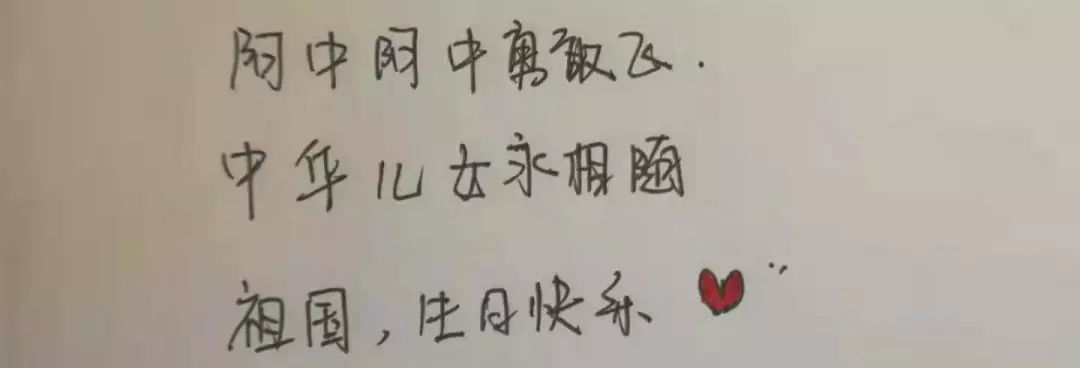 阿中阿中勇敢飞.
中华儿女永相随
祖国,生日快乐